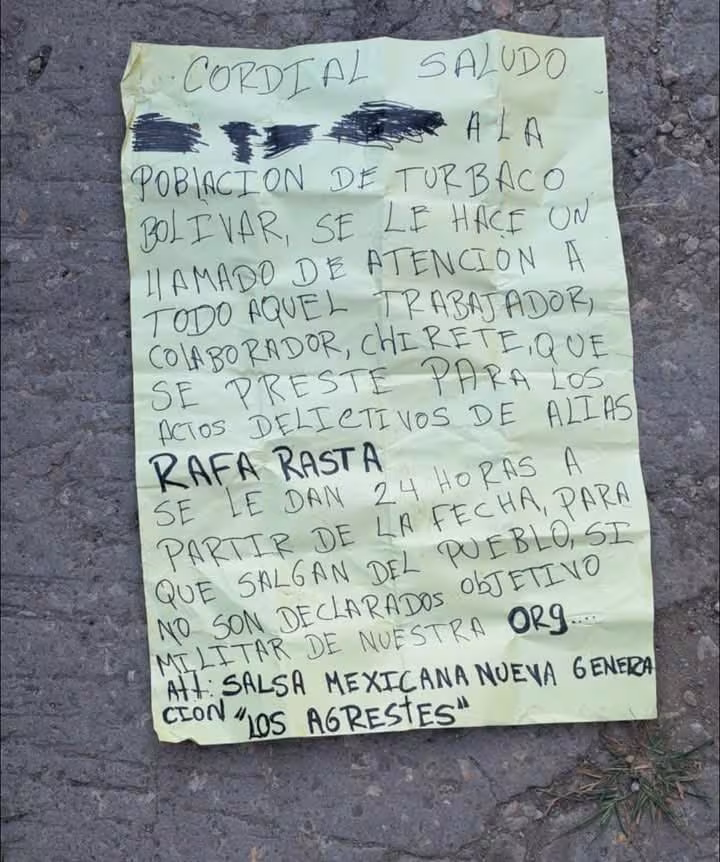 CORDIAL SALUDO
A LA
POBLACION DE TURBACO
BOLIVAR, SE LE HACE UN
LLAMADO DE ATENCION A
TODO AQUEL TRABAJADOR,
COLABORADOR, CHIRETE, QUE
SE PRESTE PARA LOS
ACTOS DELICTIVOS DE ALIAS
RAFA RASTA
SE LE DAN 24 HORAS A
PARTIR DE LA FECHA, PARA
QUE SALGAN DEL PUEBLO, SI
NO SON DECLARADOS ObJETIVO
MILITAR DE NUESTRA ORg....
Att: SALSA MEXICANA NUEVA GENERA
CION "LOS AGRESTES"